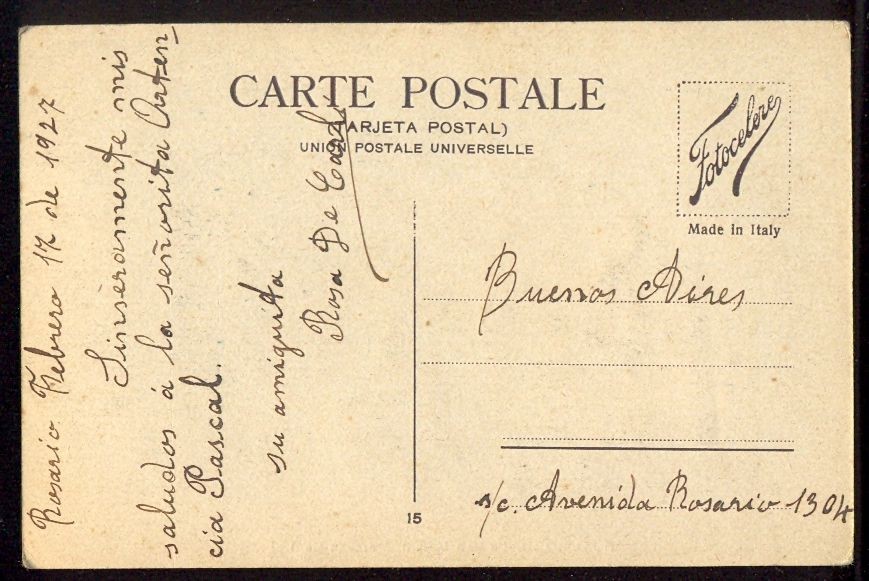 CARTE POSTALE
(TARJETA POSTAL)
UNION POSTALE UNIVERSELLE
Fotocelere
Made in Italy
Rosario Febrero 17 de 1927
Sinseramente mis
saludos á la señorita Orten-
cia Pascal.
su amiguita
Rosa De Carl
Buenos Aires
s/c. Avenida Rosario 1304
15